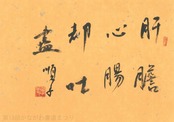 肝膽
心腸
却吐
盡